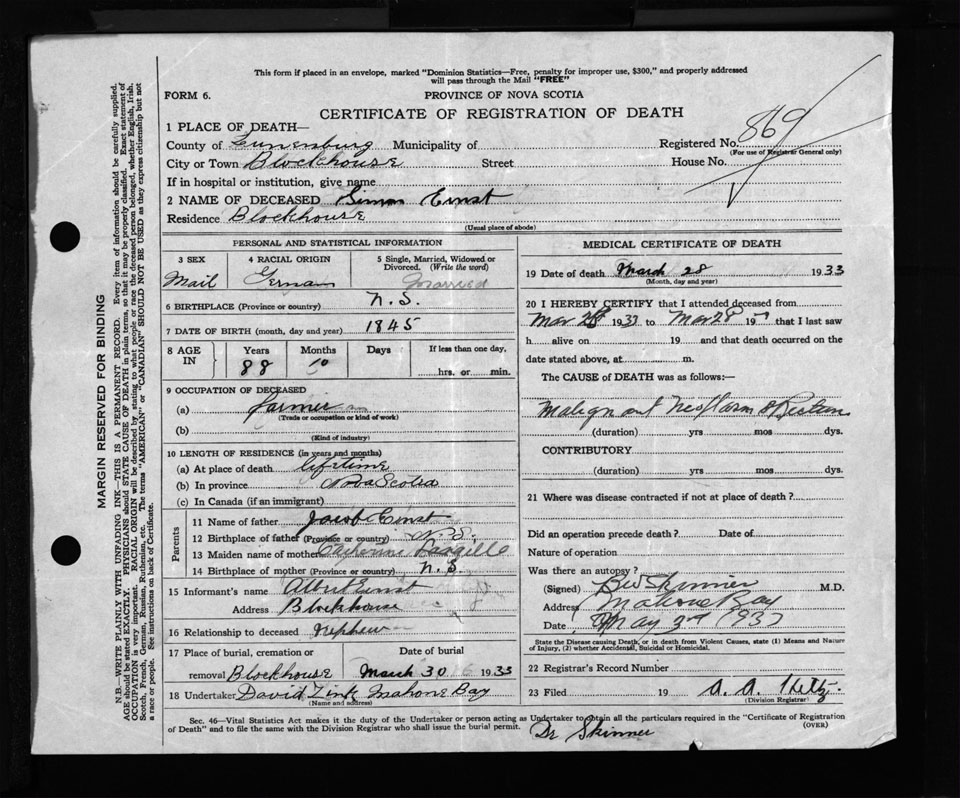 This form if placed in an envelope, marked "Dominion Statistics—Free, penalty for improper use, $300," and properly addressed
will pass through the Mail "FREE"
FORM 6.
PROVINCE OF NOVA SCOTIA
CERTIFICATE OF REGISTRATION OF DEATH
869
1 PLACE OF DEATH—
County of Lunenburg Municipality of Registered No.
(For use of Registrar General only)
City or Town Blockhouse Street House No.
If in hospital or institution, give name
2 NAME OF DECEASED Simon Ernst
Residence Blockhouse
(Usual place of abode)
PERSONAL AND STATISTICAL INFORMATION
3 SEX
Mail
4 RACIAL ORIGIN
German
5 Single, Married, Widowed or
Divorced. (Write the word)
Married
6 BIRTHPLACE (Province or country) N.S.
7 DATE OF BIRTH (month, day and year) 1845
8 AGE IN
Years Months Days If less than one day,
88 10 hrs. or min.
9 OCCUPATION OF DECEASED
(a) farmer
(Trade or occupation or kind of work)
(b)
(Kind of industry)
10 LENGTH OF RESIDENCE (in years and months)
(a) At place of death lifetime
(b) In province Nova Scotia
(c) In Canada (if an immigrant)
Parents
11 Name of father Jacob Ernst
12 Birthplace of father (Province or country) N.S.
13 Maiden name of mother Catherine Langille
14 Birthplace of mother (Province or country) N.S.
15 Informant's name Albert Ernst
Address Blockhouse
16 Relationship to deceased Nephew
17 Place of burial, cremation or Date of burial
removal Blockhouse March 30 1933
18 Undertaker David Zink Mahone Bay
(Name and address)
MEDICAL CERTIFICATE OF DEATH
19 Date of death March 28 1933
(Month, day and year)
20 I HEREBY CERTIFY that I attended deceased from
Mar 28 1933 to Mar 28 19 that I last saw
h alive on 19 and that death occurred on the
date stated above, at m.
The CAUSE of DEATH was as follows:—
Malignant Neoplasm of
(duration) yrs mos dys.
CONTRIBUTORY
(duration) yrs mos dys.
21 Where was disease contracted if not at place of death?
Did an operation precede death? Date of
Nature of operation
Was there an autopsy?
(Signed) B W Skinner M.D.
Address Mahone Bay
Date May 3rd 1933
State the Disease causing Death, or in death from Violent Causes, state (1) Means and Nature
of Injury, (2) whether Accidental, Suicidal or Homicidal.
22 Registrar's Record Number
23 Filed 19
(Division Registrar)
Sec. 46—Vital Statistics Act makes it the duty of the Undertaker or person acting as Undertaker to obtain all the particulars required in the "Certificate of Registration
of Death" and to file the same with the Division Registrar who shall issue the burial permit.
(OVER)
Dr Skinner
MARGIN RESERVED FOR BINDING
N.B.—WRITE PLAINLY WITH UNFADING INK—THIS IS A PERMANENT RECORD. Every item of information should be carefully supplied.
AGE should be stated EXACTLY. PHYSICIANS should STATE CAUSE OF DEATH in plain terms, so that it may be properly classified. Exact statement of
OCCUPATION is very important. RACIAL ORIGIN will be described by stating to what people or race the deceased person belonged, whether English, Irish,
Scotch, French, German, Russian, Ruthenian, etc. The terms "AMERICAN" or "CANADIAN" SHOULD NOT BE USED as they express citizenship but not
a race or people. See instructions on back of Certificate.